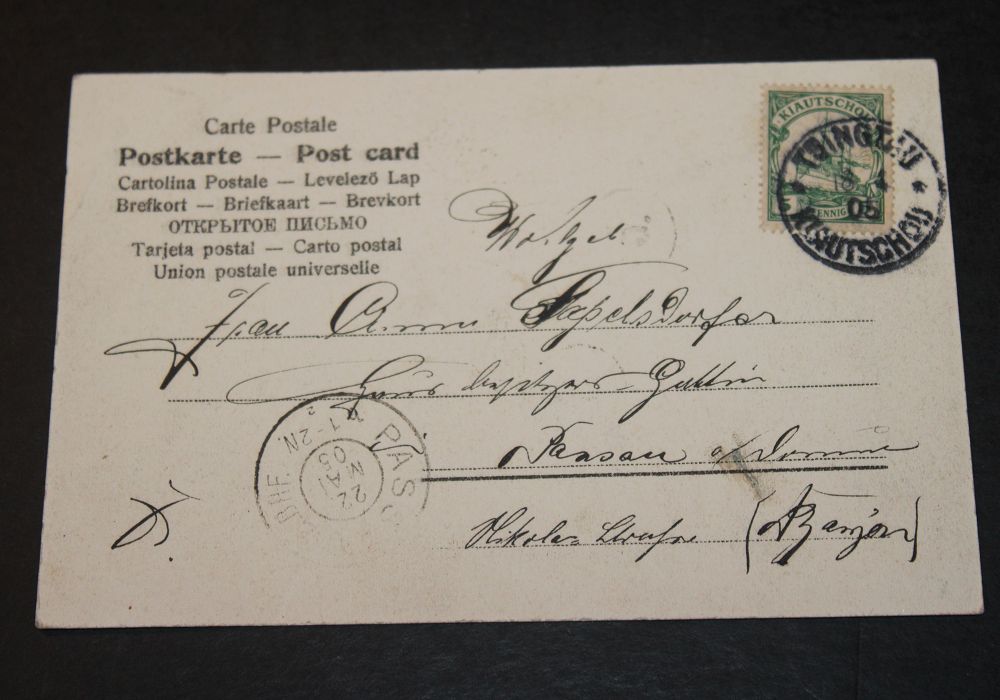 Carte Postale
Postkarte — Post card
Cartolina Postale — Levelezö Lap
Brefkort — Briefkaart — Brevkort
ОТКРЫТОЕ ПИСЬМО
Tarjeta postal — Carto postal
Union postale universelle
KIAUTSCHOU
5 PFENNIG
TSINGTAU
05
KIAUTSCHOU
Frau Anna
Haus besitzers-Gattin
Passau a/Donau
Nikola-Strasse (Bayern)
PASS
1-2N.
22
MAI
05
BHF.